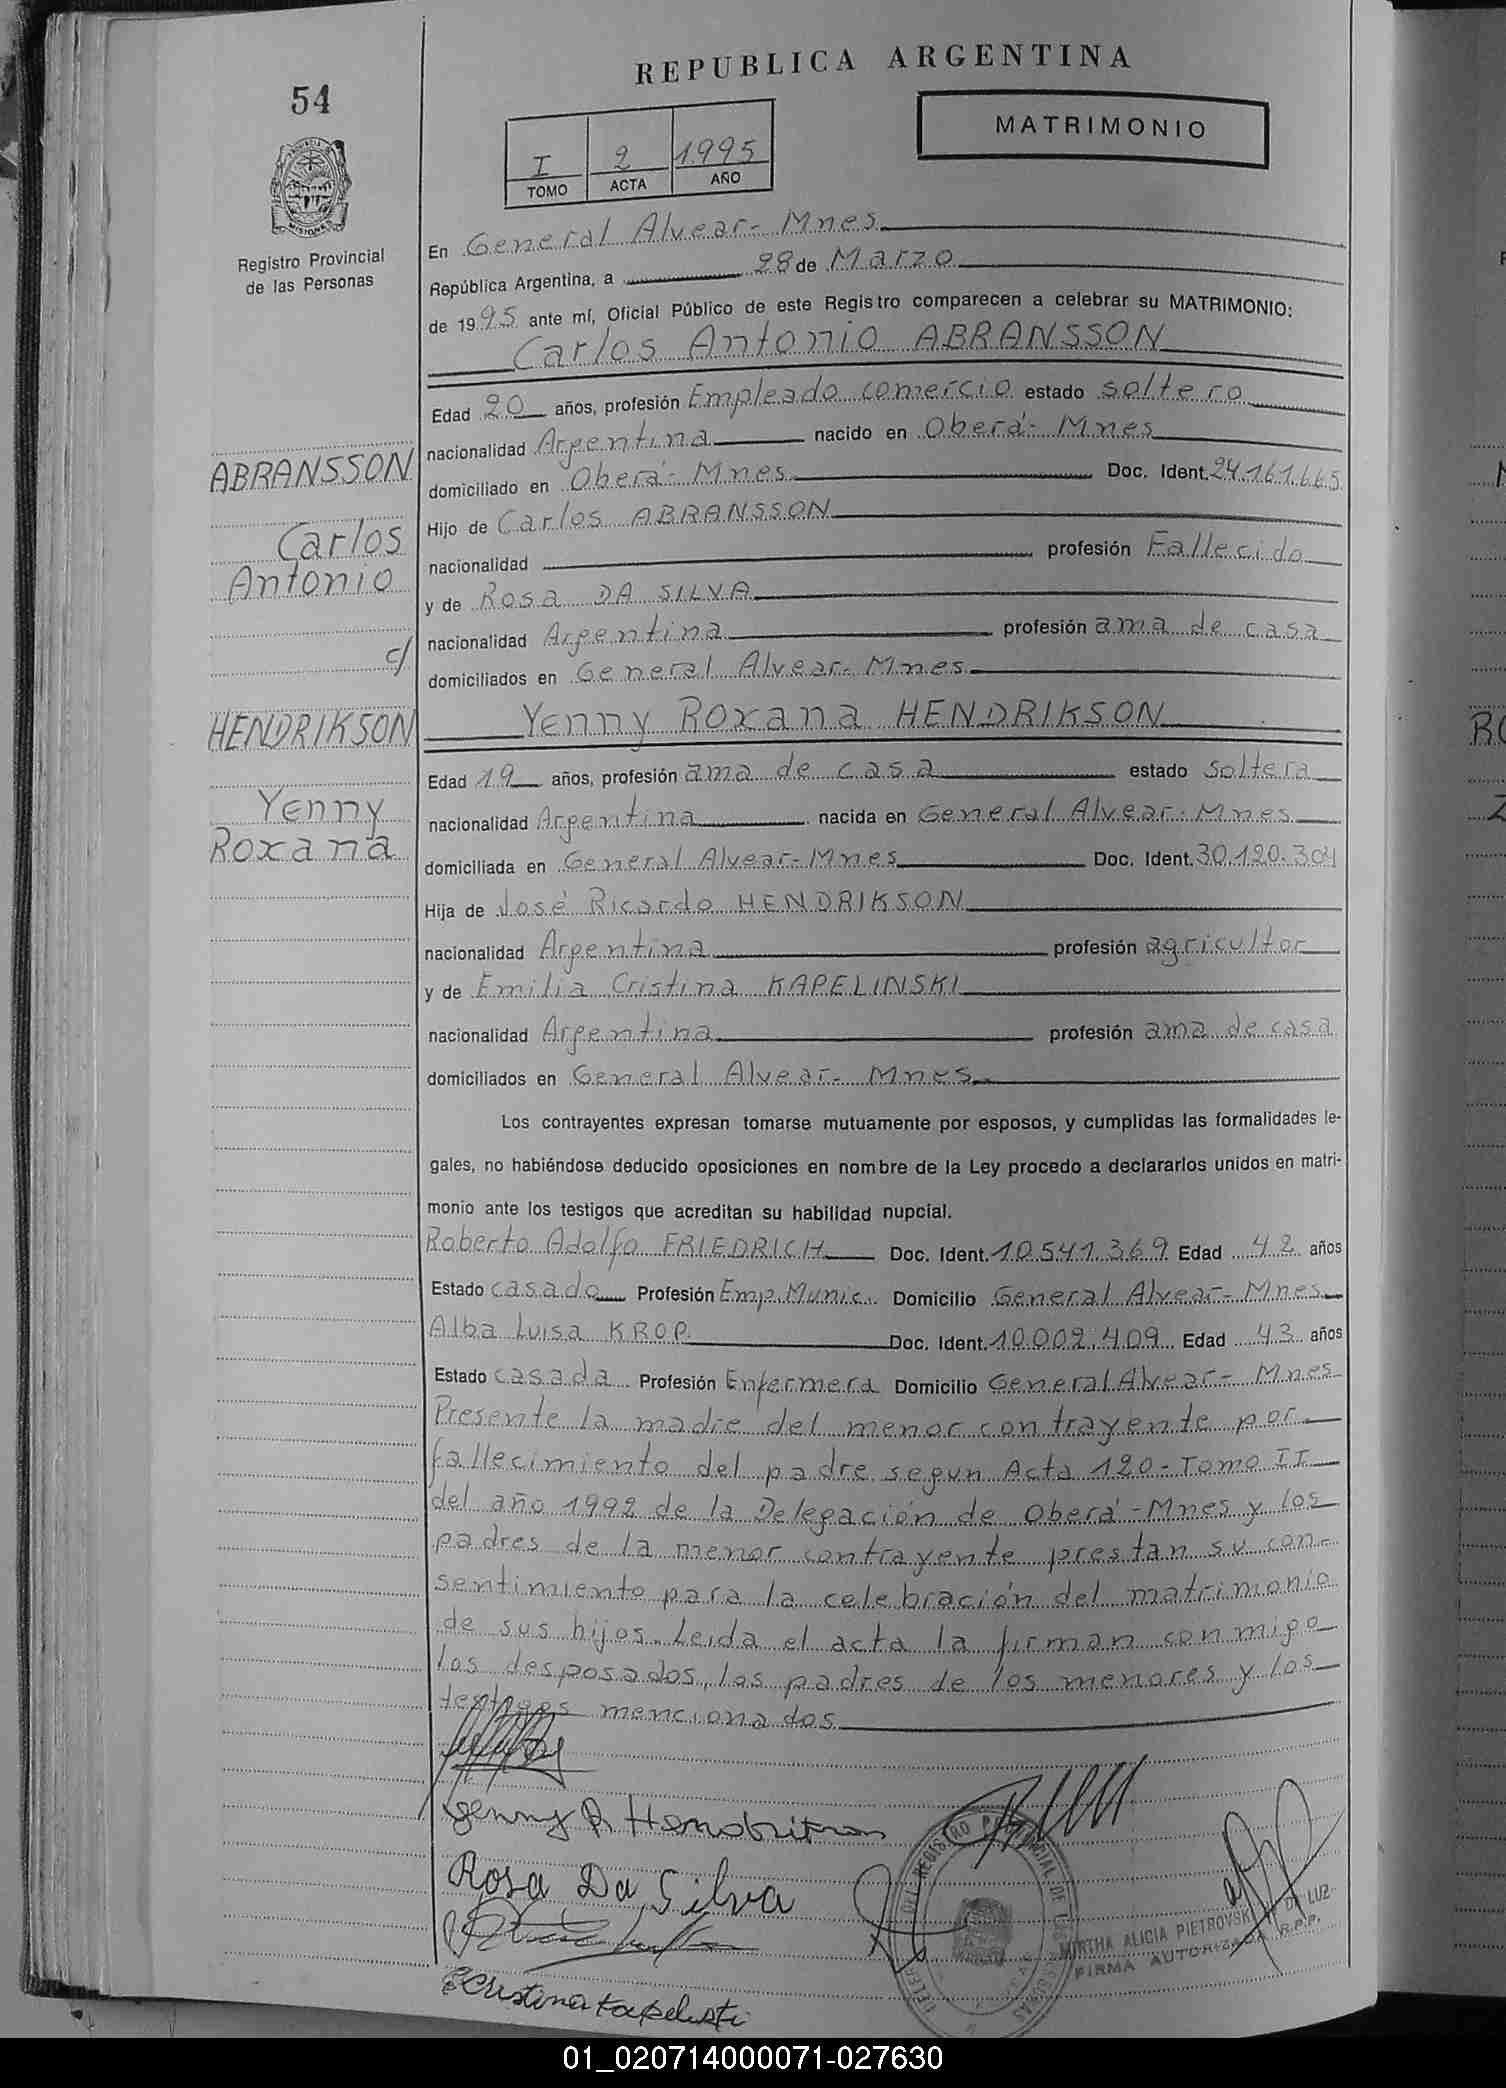 REPUBLICA ARGENTINA
54
MATRIMONIO
I 2 1995
TOMO ACTA AÑO
MISIONES
Registro Provincial
de las Personas
En General Alvear - Mnes
República Argentina, a 28 de Marzo
de 1995 ante mí, Oficial Público de este Registro comparecen a celebrar su MATRIMONIO:
Carlos Antonio ABRANSSON
Edad 20 años, profesión Empleado comercio estado soltero
nacionalidad Argentina nacido en Oberá - Mnes
domiciliado en Oberá - Mnes Doc. Ident. 24.161.665
Hijo de Carlos ABRANSSON
nacionalidad profesión Fallecido
y de Rosa DA SILVA
nacionalidad Argentina profesión ama de casa
domiciliados en General Alvear - Mnes
ABRANSSON
Carlos
Antonio
c/
HENDRIKSON
Yenny
Roxana
Yenny Roxana HENDRIKSON
Edad 19 años, profesión ama de casa estado soltera
nacionalidad Argentina nacida en General Alvear - Mnes
domiciliada en General Alvear - Mnes Doc. Ident. 30.120.304
Hija de José Ricardo HENDRIKSON
nacionalidad Argentina profesión agricultor
y de Emilia Cristina KAPELINSKI
nacionalidad Argentina profesión ama de casa
domiciliados en General Alvear - Mnes
Los contrayentes expresan tomarse mutuamente por esposos, y cumplidas las formalidades le-
gales, no habiéndose deducido oposiciones en nombre de la Ley procedo a declararlos unidos en matri-
monio ante los testigos que acreditan su habilidad nupcial.
Roberto Adolfo FRIEDRICH Doc. Ident. 10.541.369 Edad 42 años
Estado casado Profesión Emp. Munic. Domicilio General Alvear - Mnes
Alba Luisa KROP Doc. Ident. 10.002.409 Edad 43 años
Estado casada Profesión Enfermera Domicilio General Alvear - Mnes
Presente la madre del menor contrayente por
fallecimiento del padre segun Acta 120 - Tomo II
del año 1992 de la Delegación de Oberá - Mnes y los
padres de la menor contrayente prestan su con-
sentimiento para la celebración del matrimonio
de sus hijos. Leida el acta la firman conmigo
los desposados, los padres de los menores y los
testigos mencionados
Yenny R Hendrikson
Rosa Da Silva
MIRTHA ALICIA PIETROVSKI DE LUZ
FIRMA AUTORIZADA R.P.P.
E Cristina Kapelinski
01_020714000071-027630